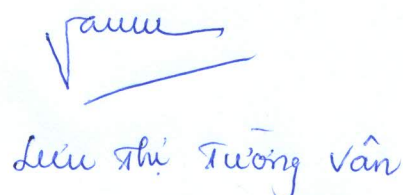 Lưu Thị Tường Vân